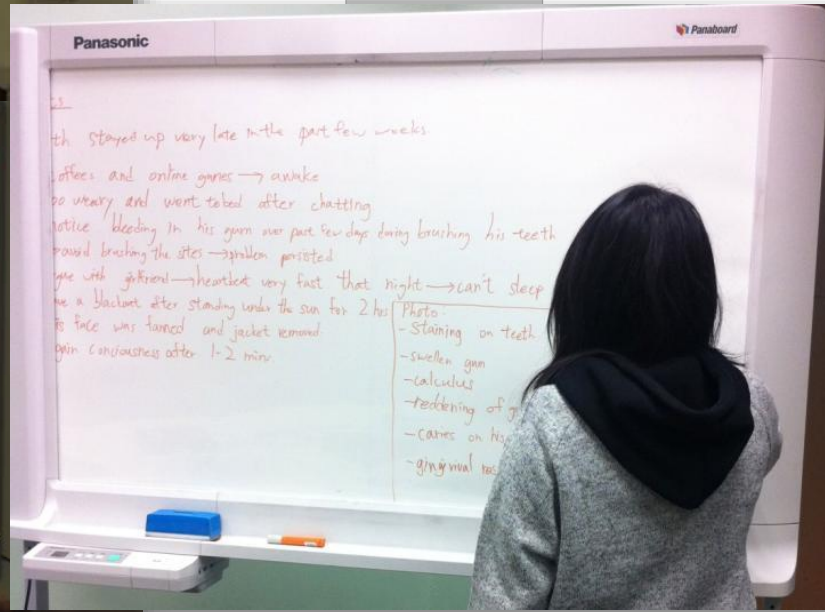 Panasonic
Panaboard
cs
th stayed up very late in the past few weeks
offees and online games → awake
oo weary and went to bed after chatting
otice bleeding in his gum over past few days during brushing his teeth
avoid brushing the sites → problem persisted
gue with girlfriend → heartbeat very fast that night → can't sleep
ve a blackout after standing under the sun for 2 hrs
is face was fanned and jacket removed
gain conciousness after 1-2 mins
Photo:
- Staining on teeth
- swollen gum
- calculus
- reddening of g
- caries on his
- gingival